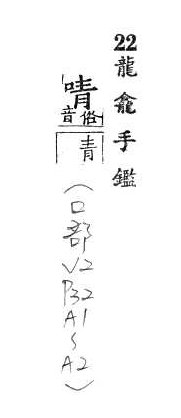 22龍龕手鑑
啨俗音青
（口部V2P32A1~A2）